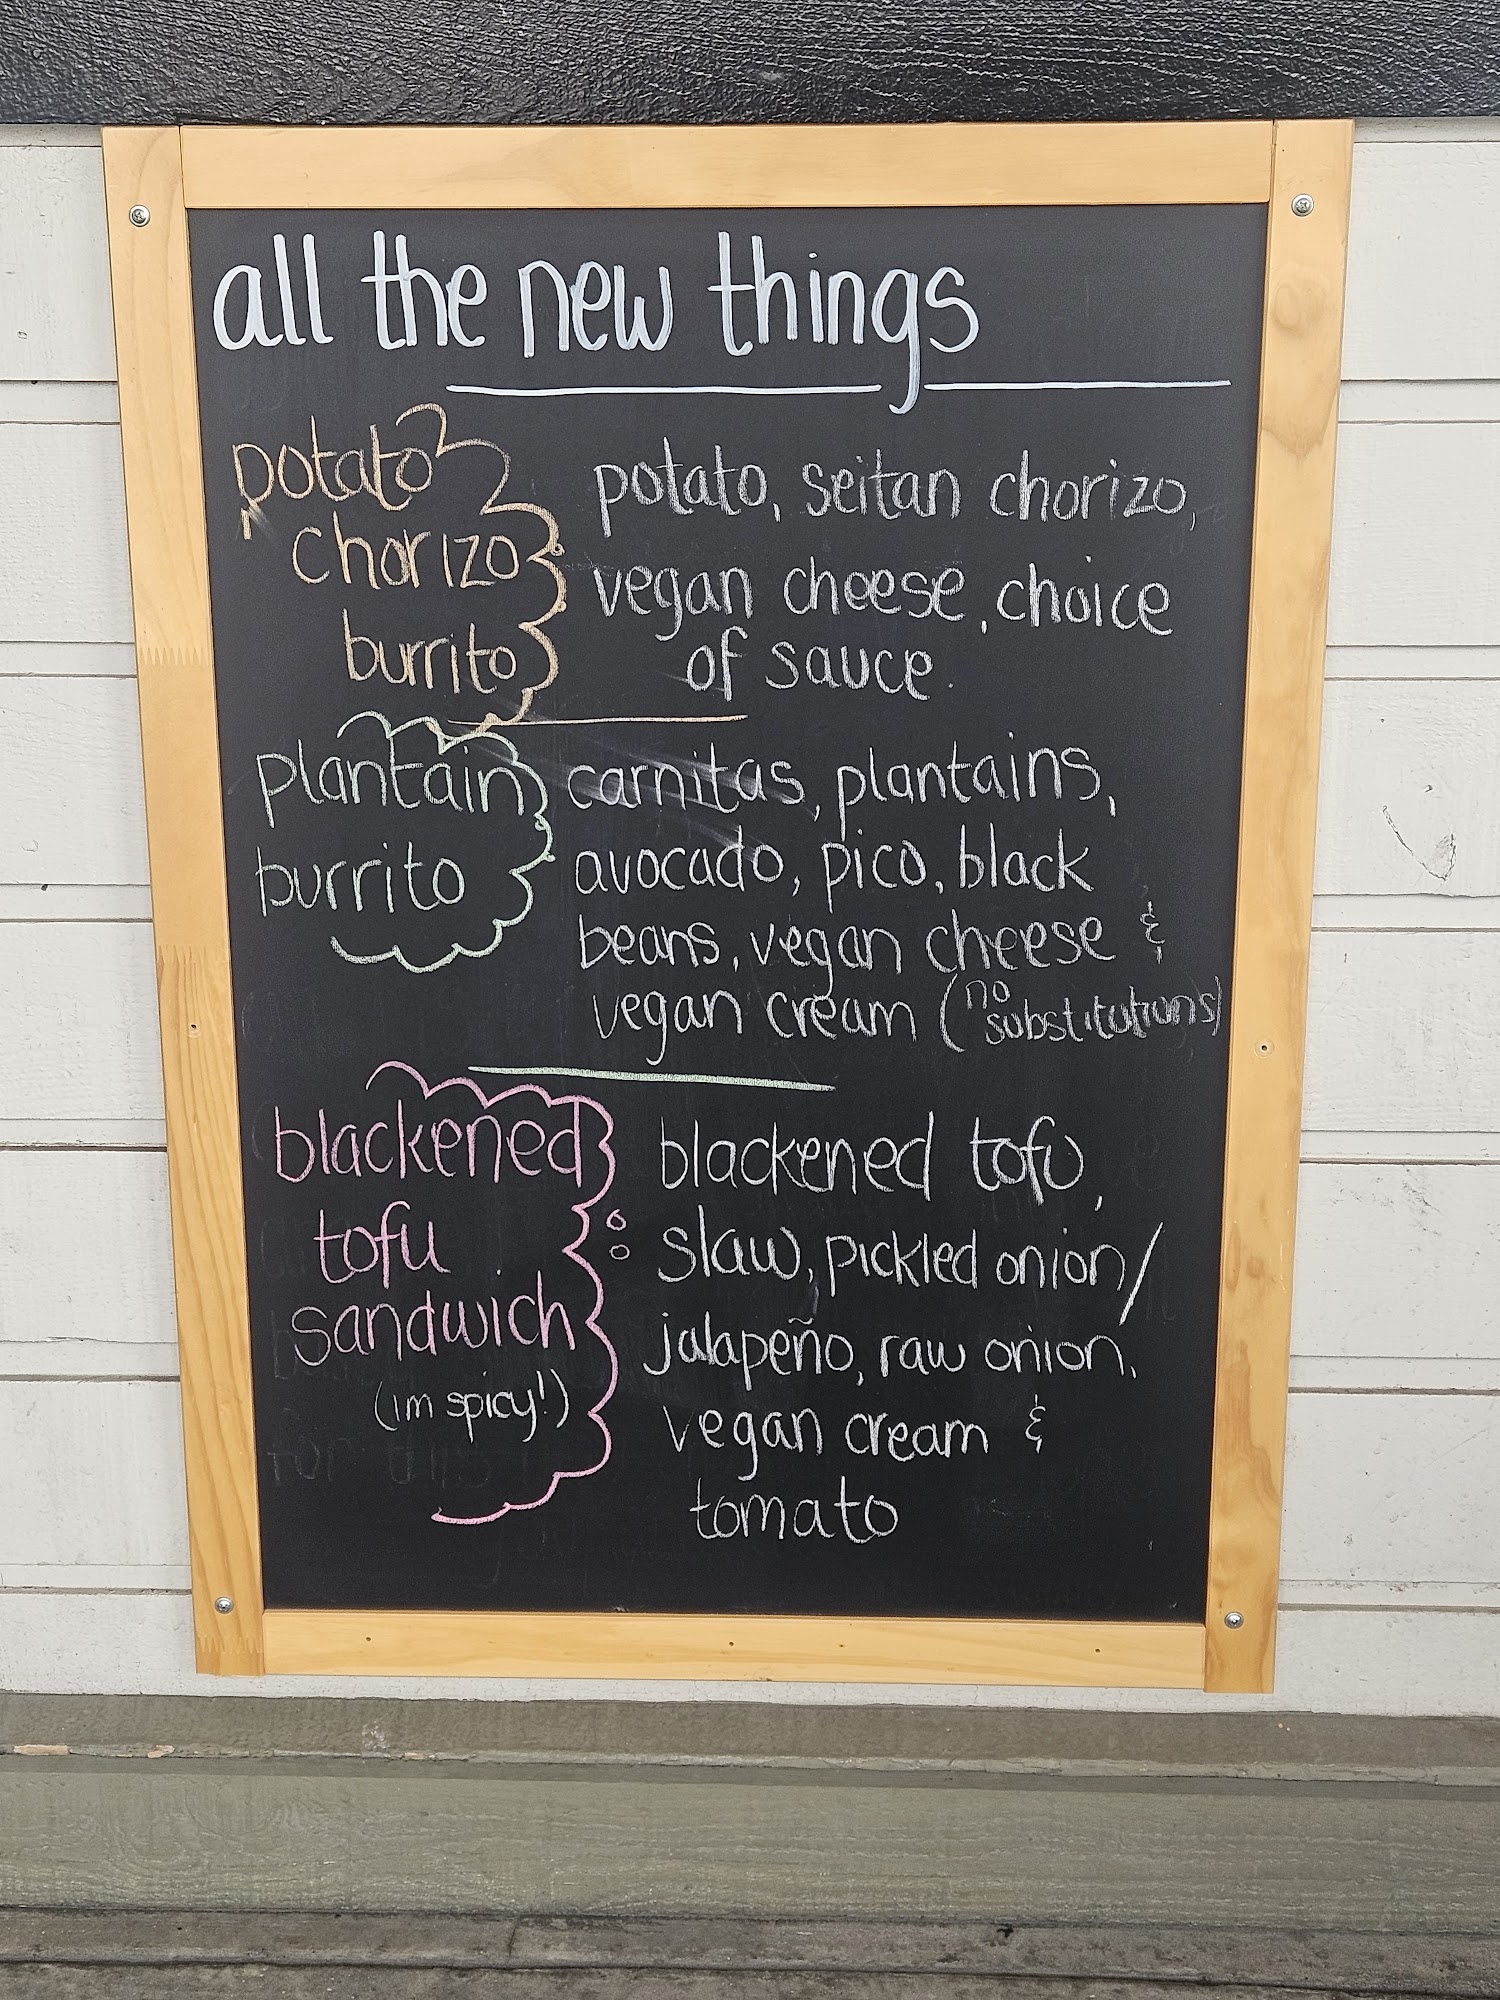 all the new things
potato
chorizo
burrito
potato, seitan chorizo,
vegan cheese, choice
of sauce.
plantain
burrito
carnitas, plantains,
avocado, pico, black
beans, vegan cheese &
vegan cream (no substitutions)
blackened
tofu
sandwich
(im spicy!)
: blackened tofu,
slaw, pickled onion/
jalapeño, raw onion,
vegan cream &
tomato